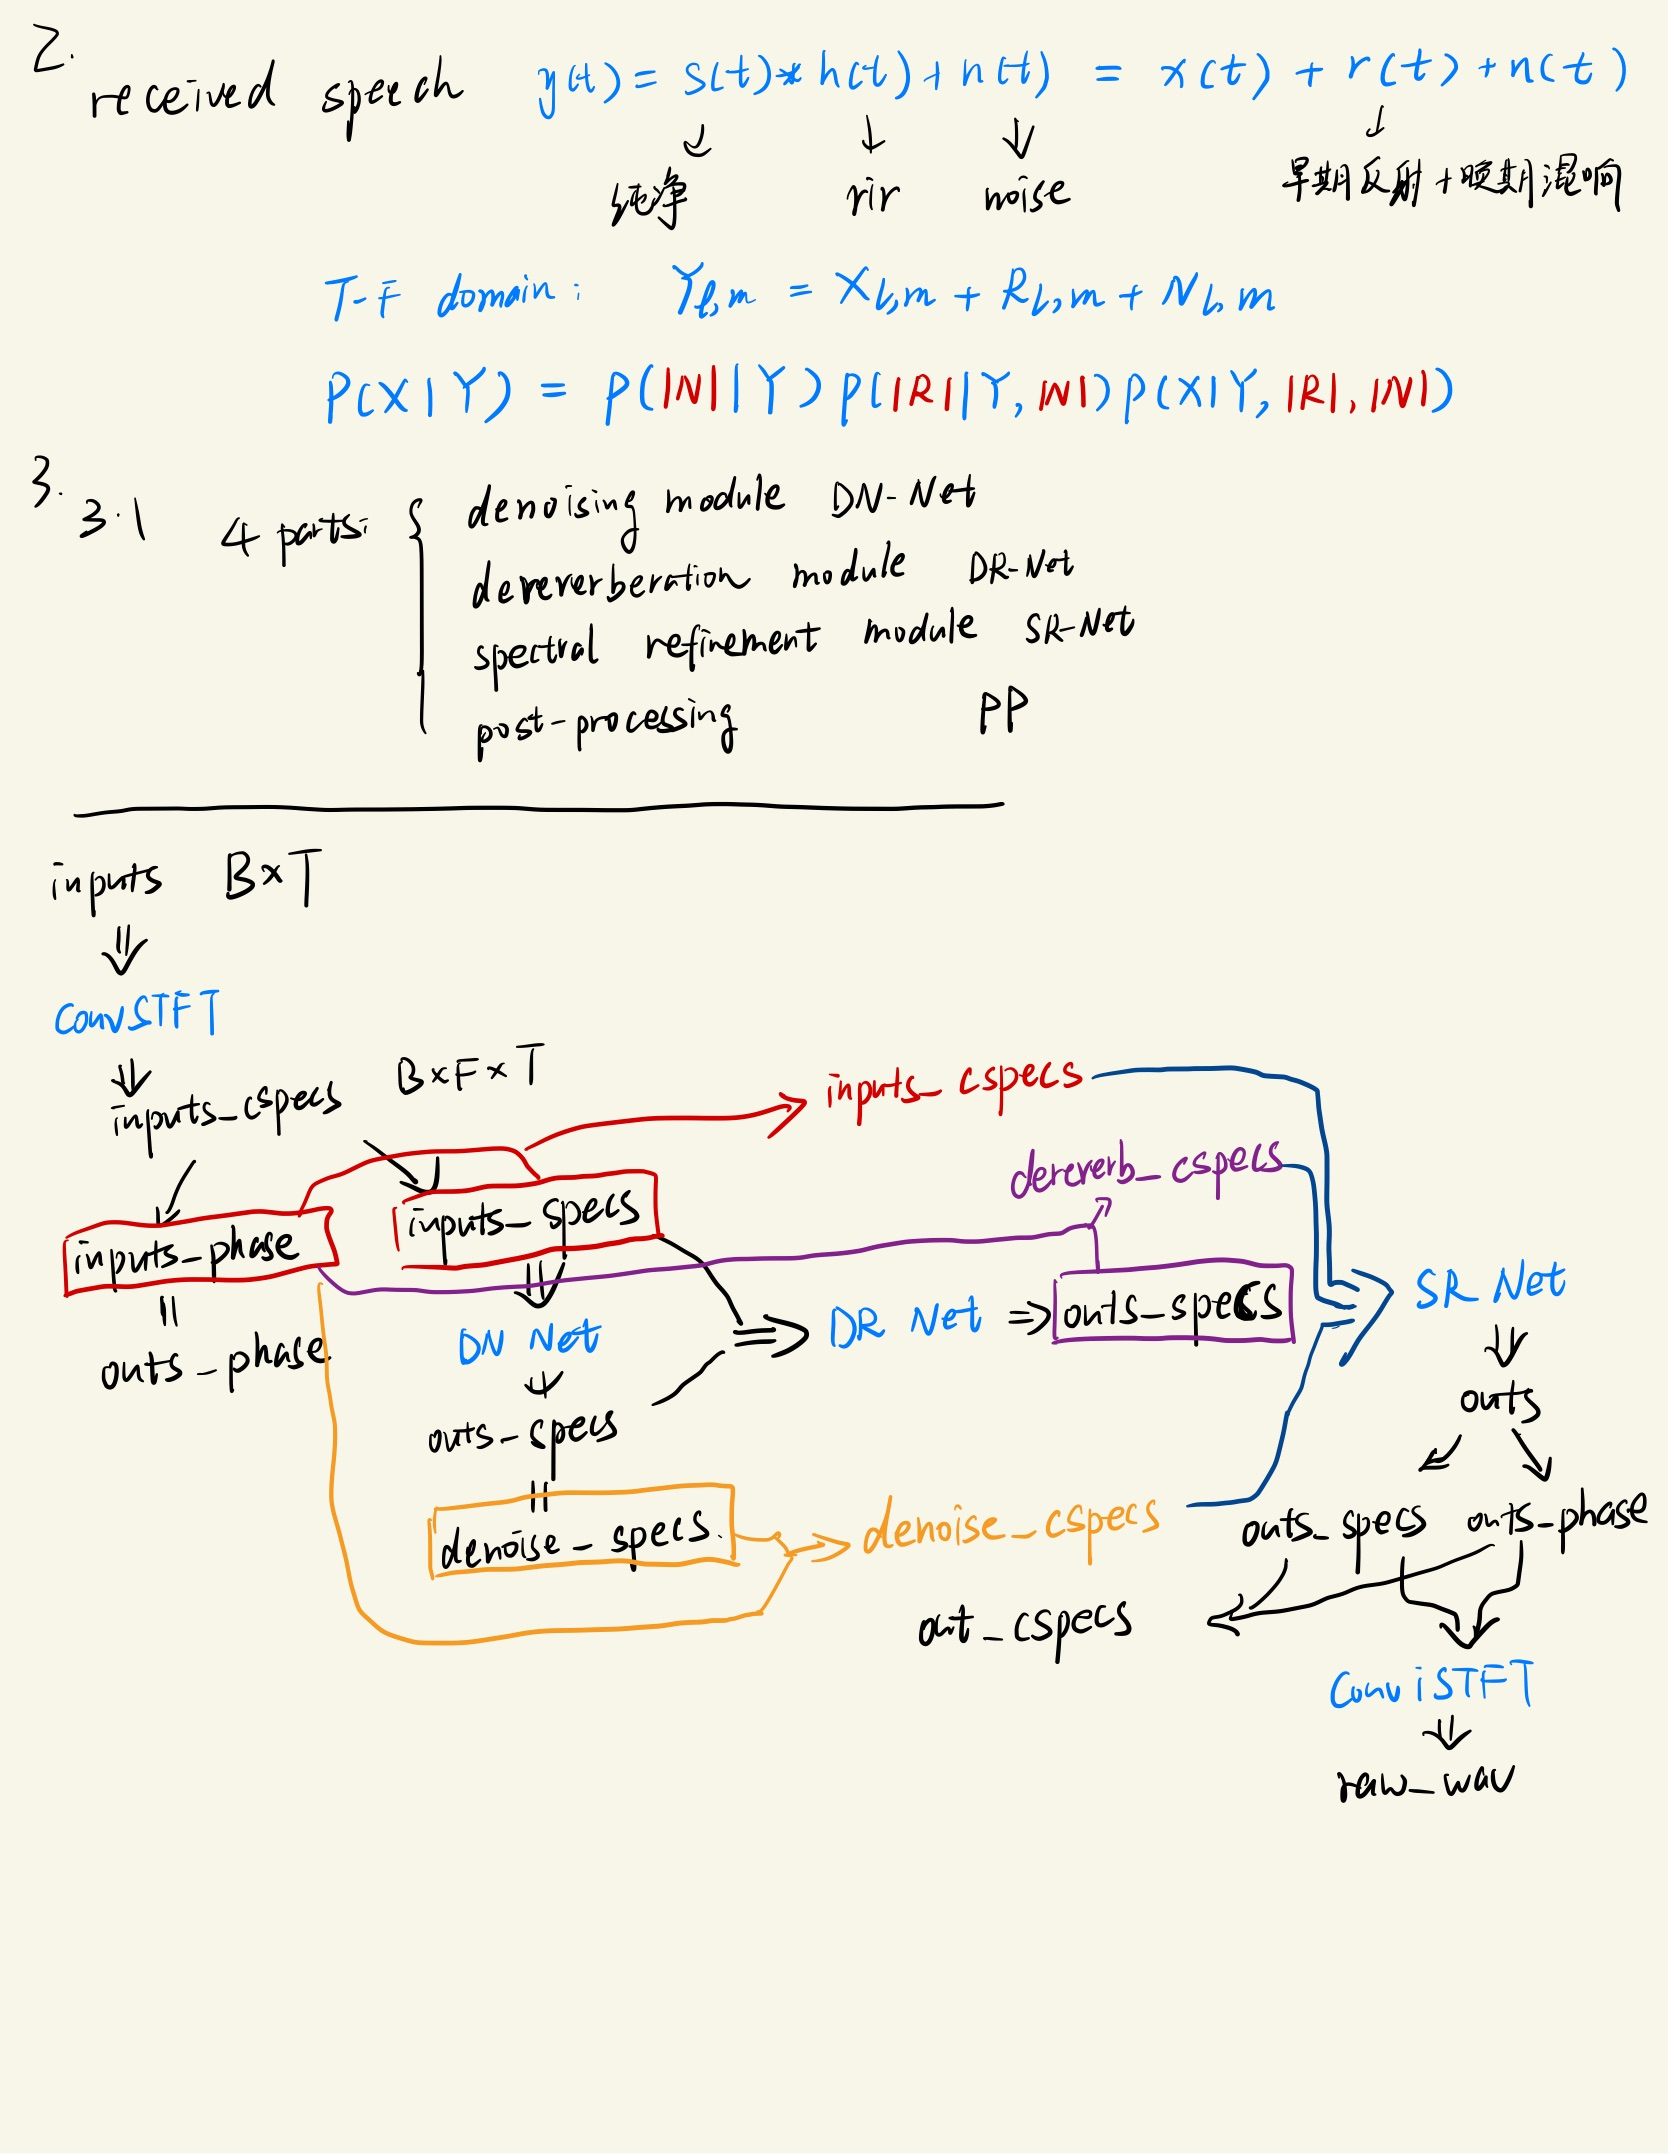 2.
received speech y(t) = s(t)*h(t)+n(t) = x(t) + r(t)+n(t)
纯净 rir noise 早期反射+晚期混响
T-F domain: Yl,m = Xl,m + Rl,m + Nl,m
P(X|Y) = P(|N||Y)P(|R||Y,|N|)P(X|Y,|R|,|N|)
3.
3.1 4 parts: { denoising module DN-Net
dereverberation module DR-Net
spectral refinement module SR-Net
post-processing PP
inputs B×T
ConvSTFT
inputs_cspecs B×F×T
inputs_cspecs
dereverb_cspecs
inputs_phase inputs_specs
outs_phase
DN Net
DR Net ⇒ outs_specs
SR Net
outs
outs_specs
denoise_specs
denoise_cspecs
outs_specs outs_phase
out_cspecs
ConviSTFT
raw_wav